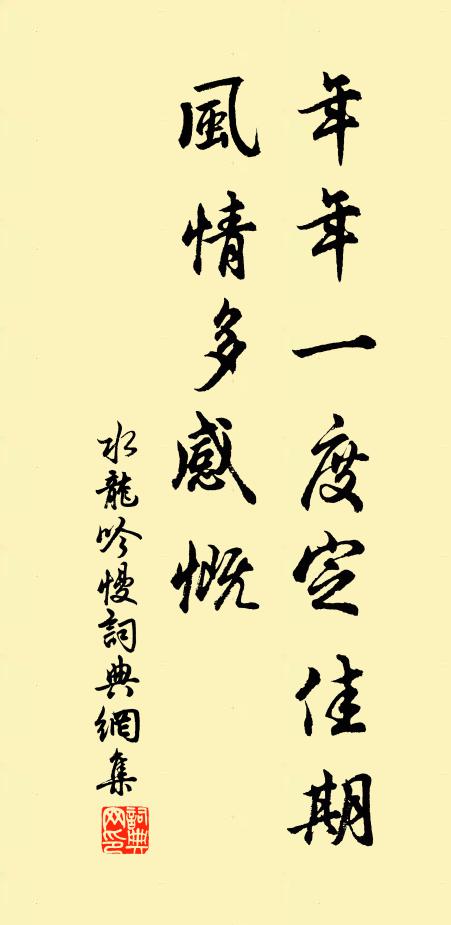 年年一度定佳期
風情多感慨
水龍吟慢詞典網集
詞典網印